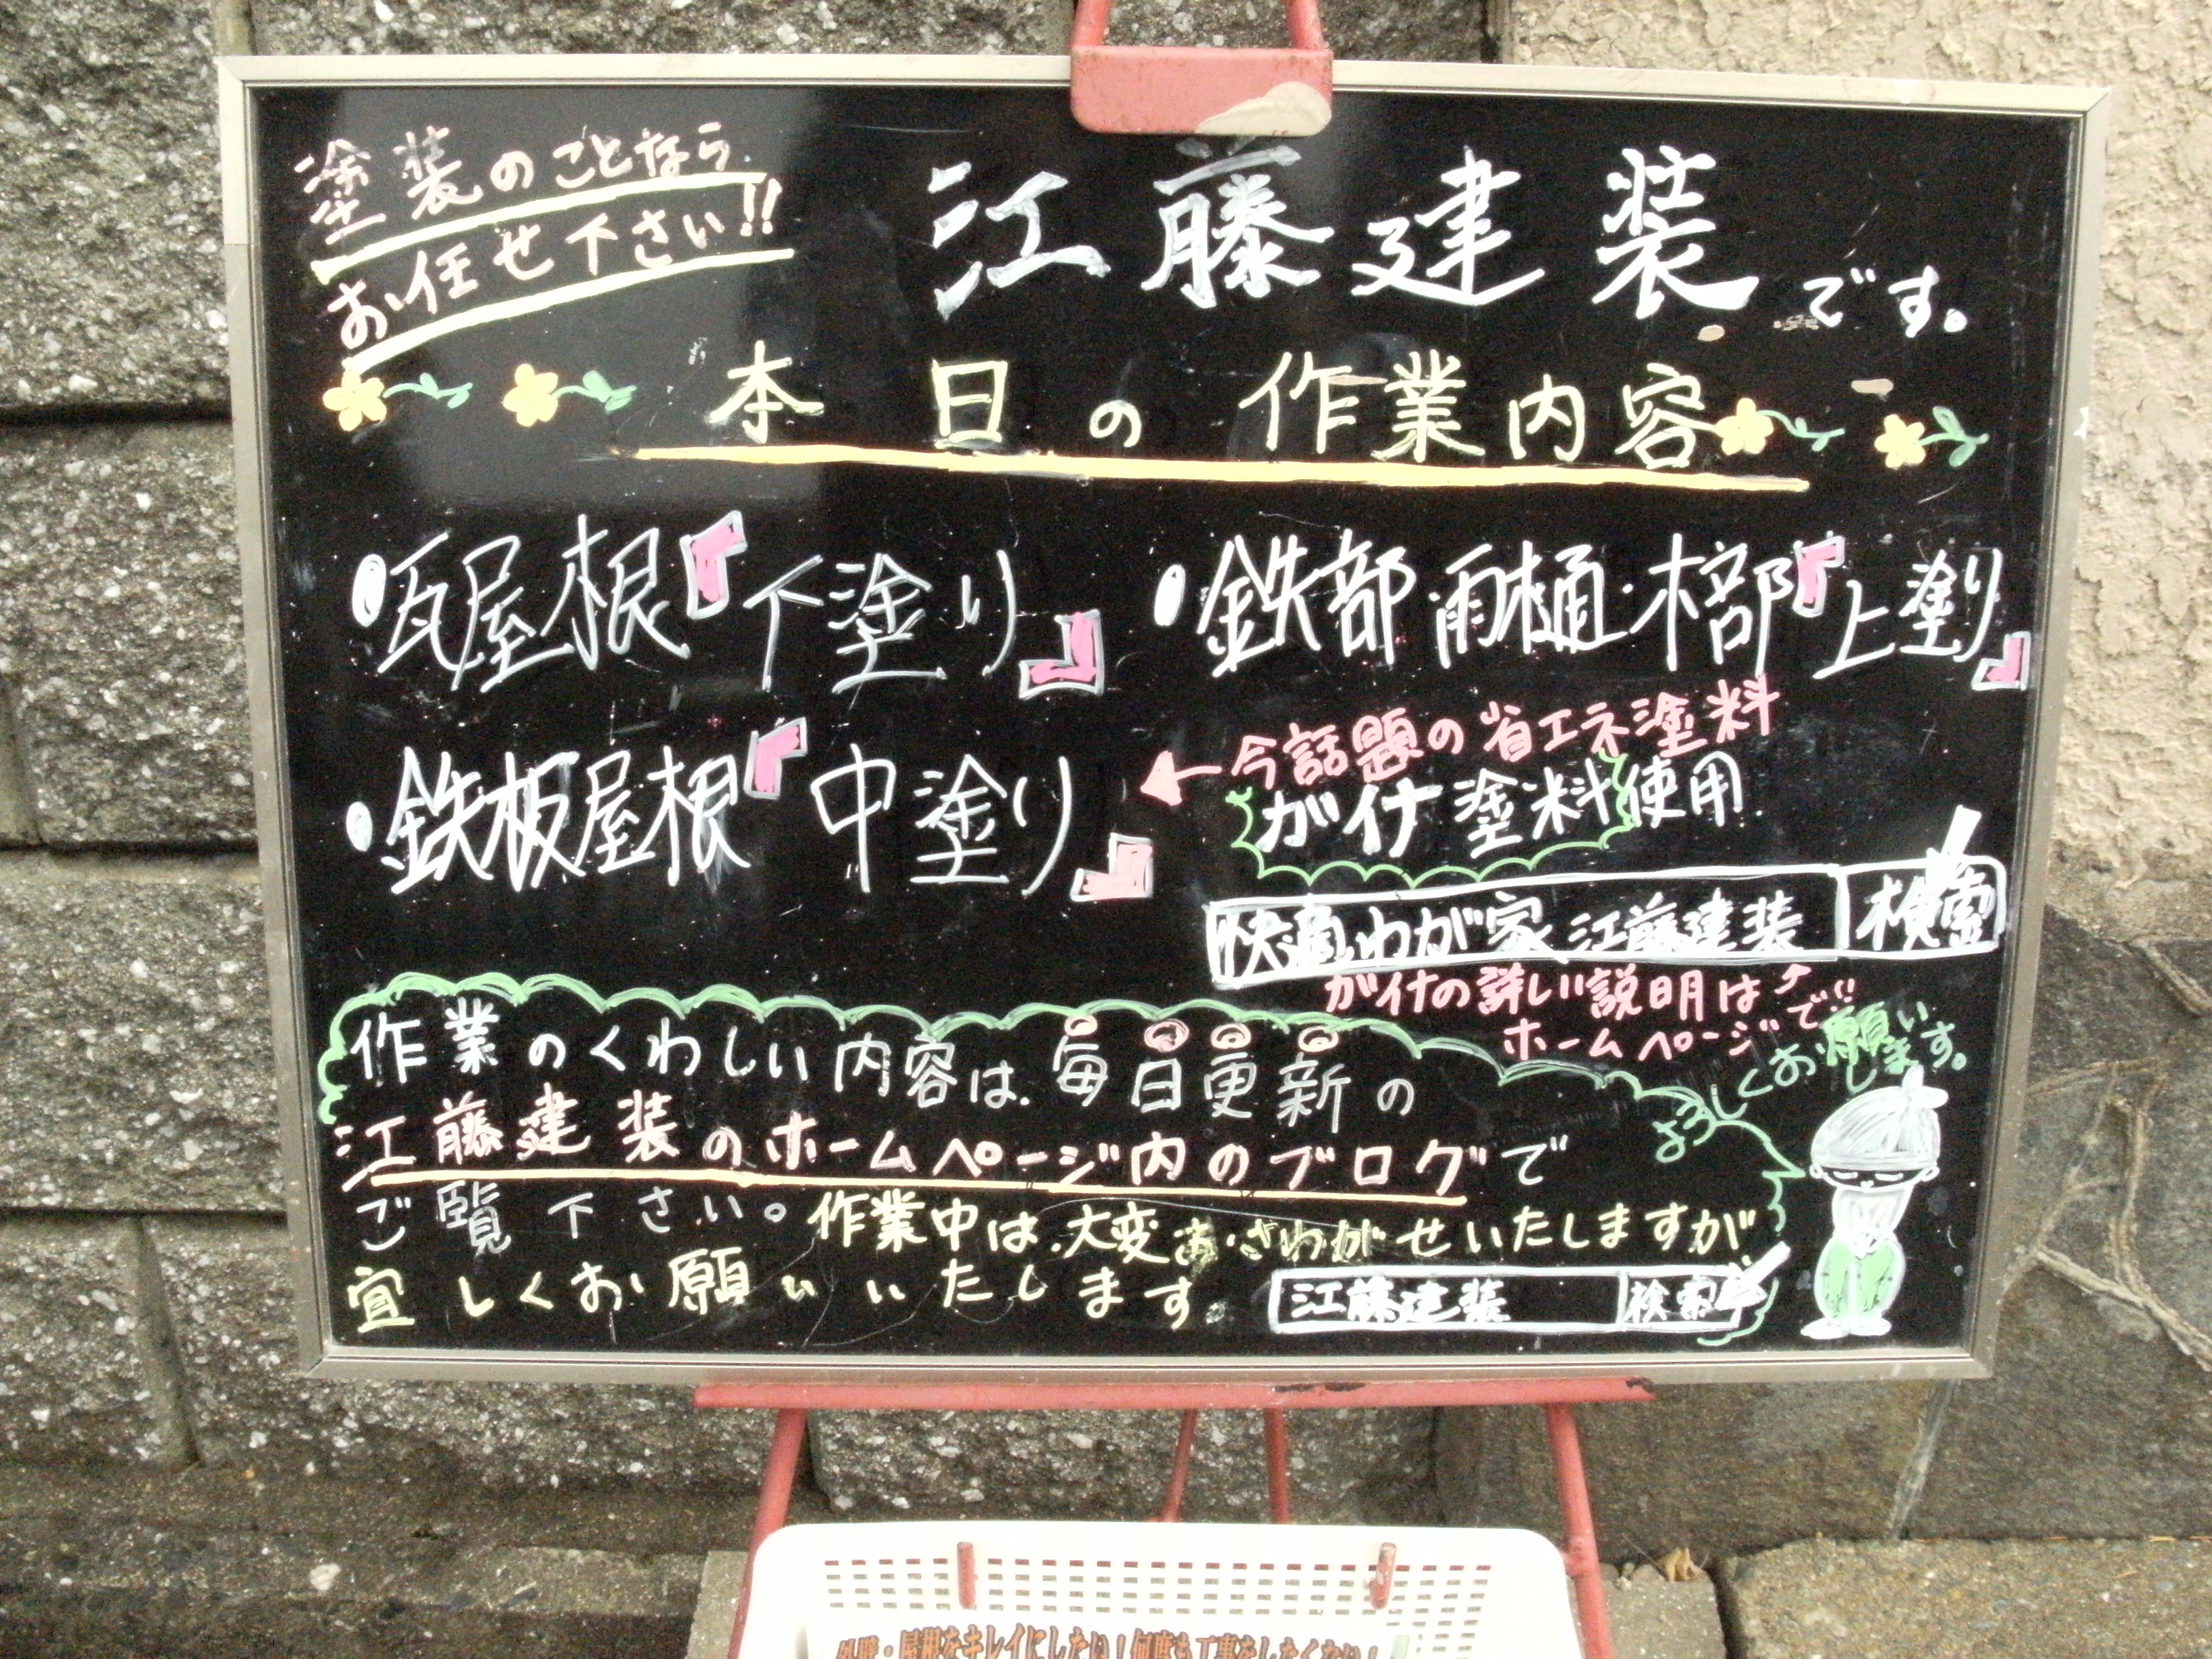 塗装のことなら
お任せ下さい!!
江藤建装です。
本日の作業内容
・瓦屋根『下塗り』
・鉄部・雨樋・木部『上塗り』
・鉄板屋根『中塗り』
←今話題の省エネ塗料
ガイナ塗料使用
快適わが家 江藤建装 検索
ガイナの詳しい説明は
ホームページで!!
作業のくわしい内容は、毎日更新の
江藤建装のホームページ内のブログで
ご覧下さい。作業中は、大変おさわがせいたしますが
宜しくお願いいたします。
江藤建装 検索
よろしくお願いします。
外壁・屋根をキレイにしたい!何度も工事をしたくない!